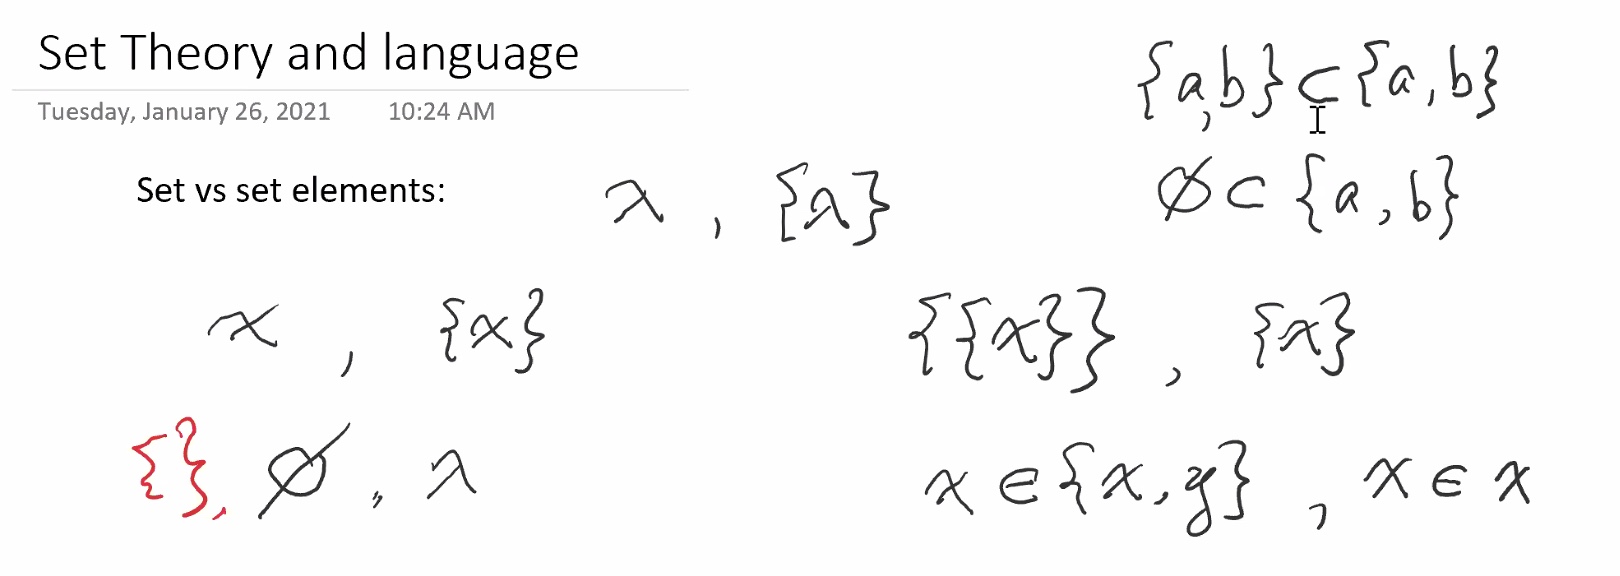 Set Theory and language
Tuesday, January 26, 2021 10:24 AM
{a,b} ⊂ {a,b}
∅ ⊂ {a,b}
Set vs set elements: λ , {λ}
x , {x} {{x}} , {x}
{}, ∅ , λ x ∈ {x,y} , x ∈ x